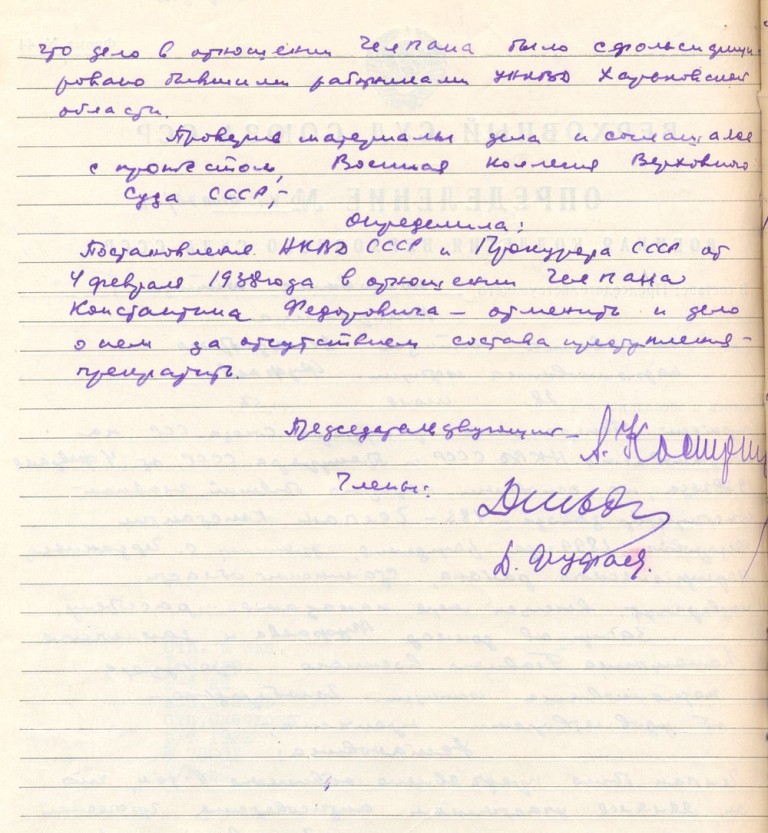 что дело в отношении Чепана было сфольсифици-
ровано бывшими работниками НКВД Харьковской
области.
Проверив материалы дела и соглашаясь
с протестом, Военная коллегия Верховного
Суда СССР,-
определила:
Постановление НКВД СССР и Прокурора СССР от
4 февраля 1938 года в отношении Чепана
Константина Федоровича - отменить и дело
о нем за отсутствием состава преступления -
прекратить.
Председательствующий - А. Костромин
Члены:
Д.